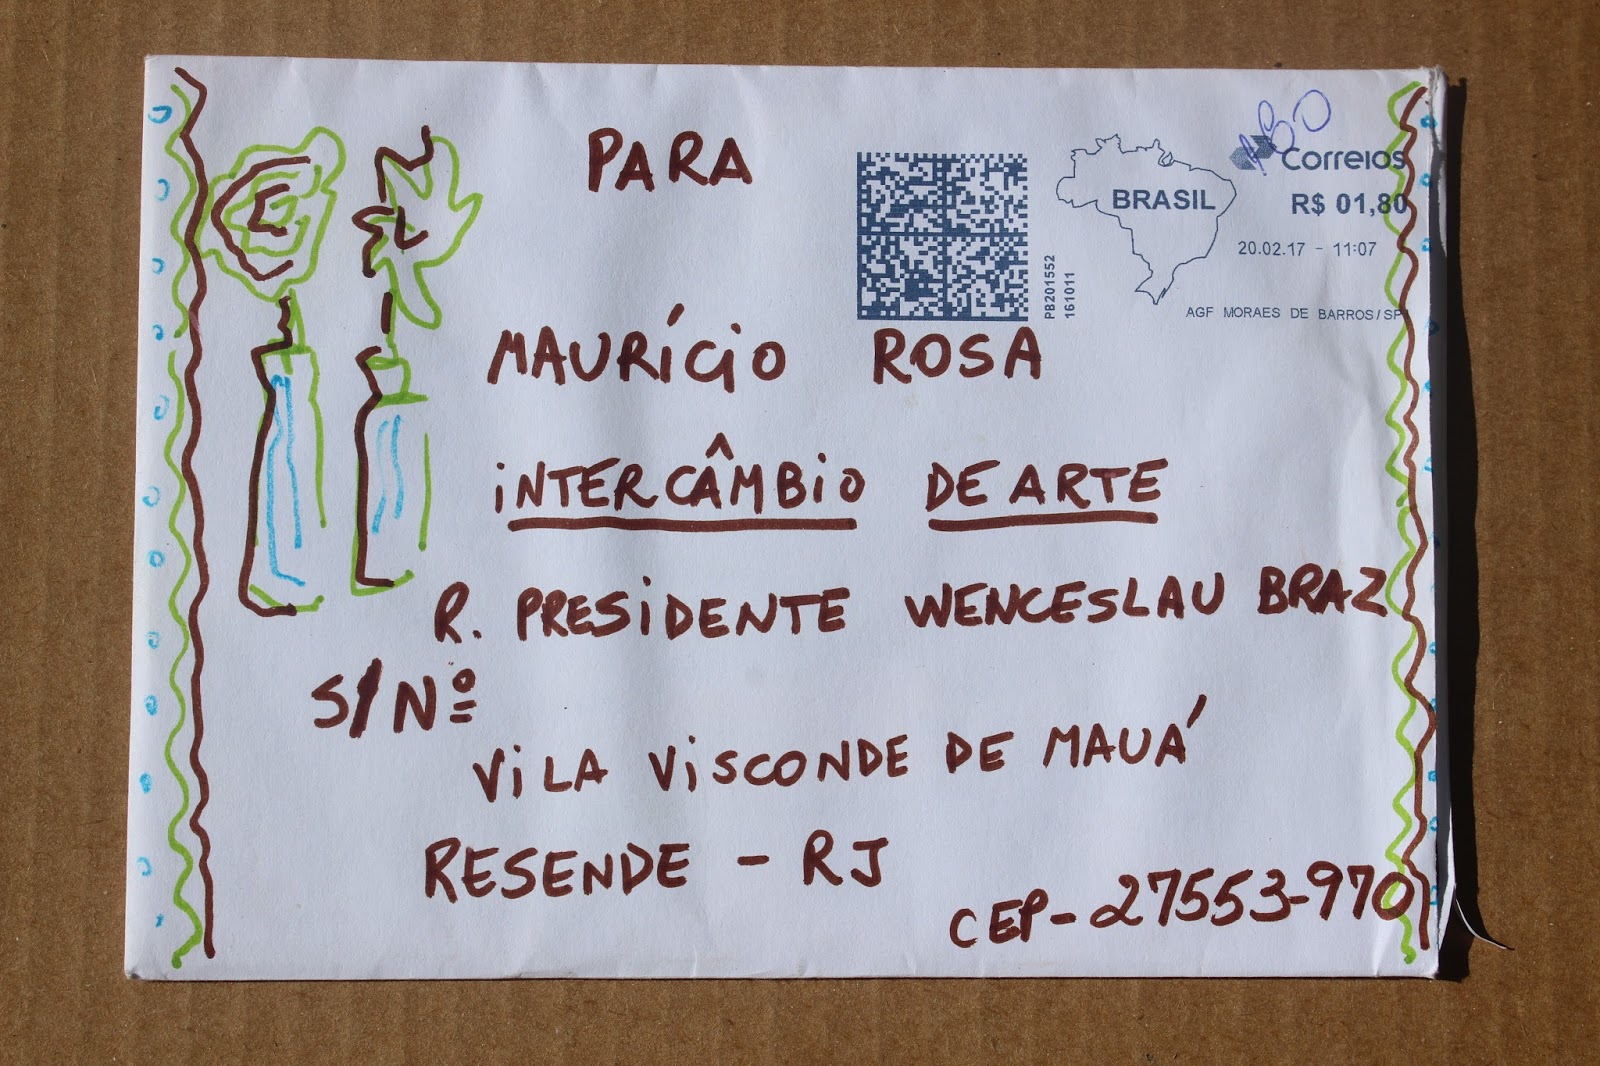 PARA
BRASIL
Correios
R$ 01,80
20.02.17 - 11:07
PB201552
161011
AGF MORAES DE BARROS/SP
MAURÍCIO ROSA
INTERCÂMBIO DE ARTE
R. PRESIDENTE WENCESLAU BRAZ
S/Nº
VILA VISCONDE DE MAUÁ
RESENDE - RJ
CEP- 27553-970